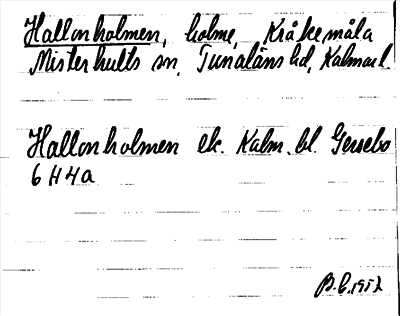 Hallonholmen, holme, Kråkemåla
Misterhults sn, Tunaläns hd, Kalmar l.
Hallonholmen ek. Kalm. bl. Gersebo
6 H 4 a
B. E. 1952